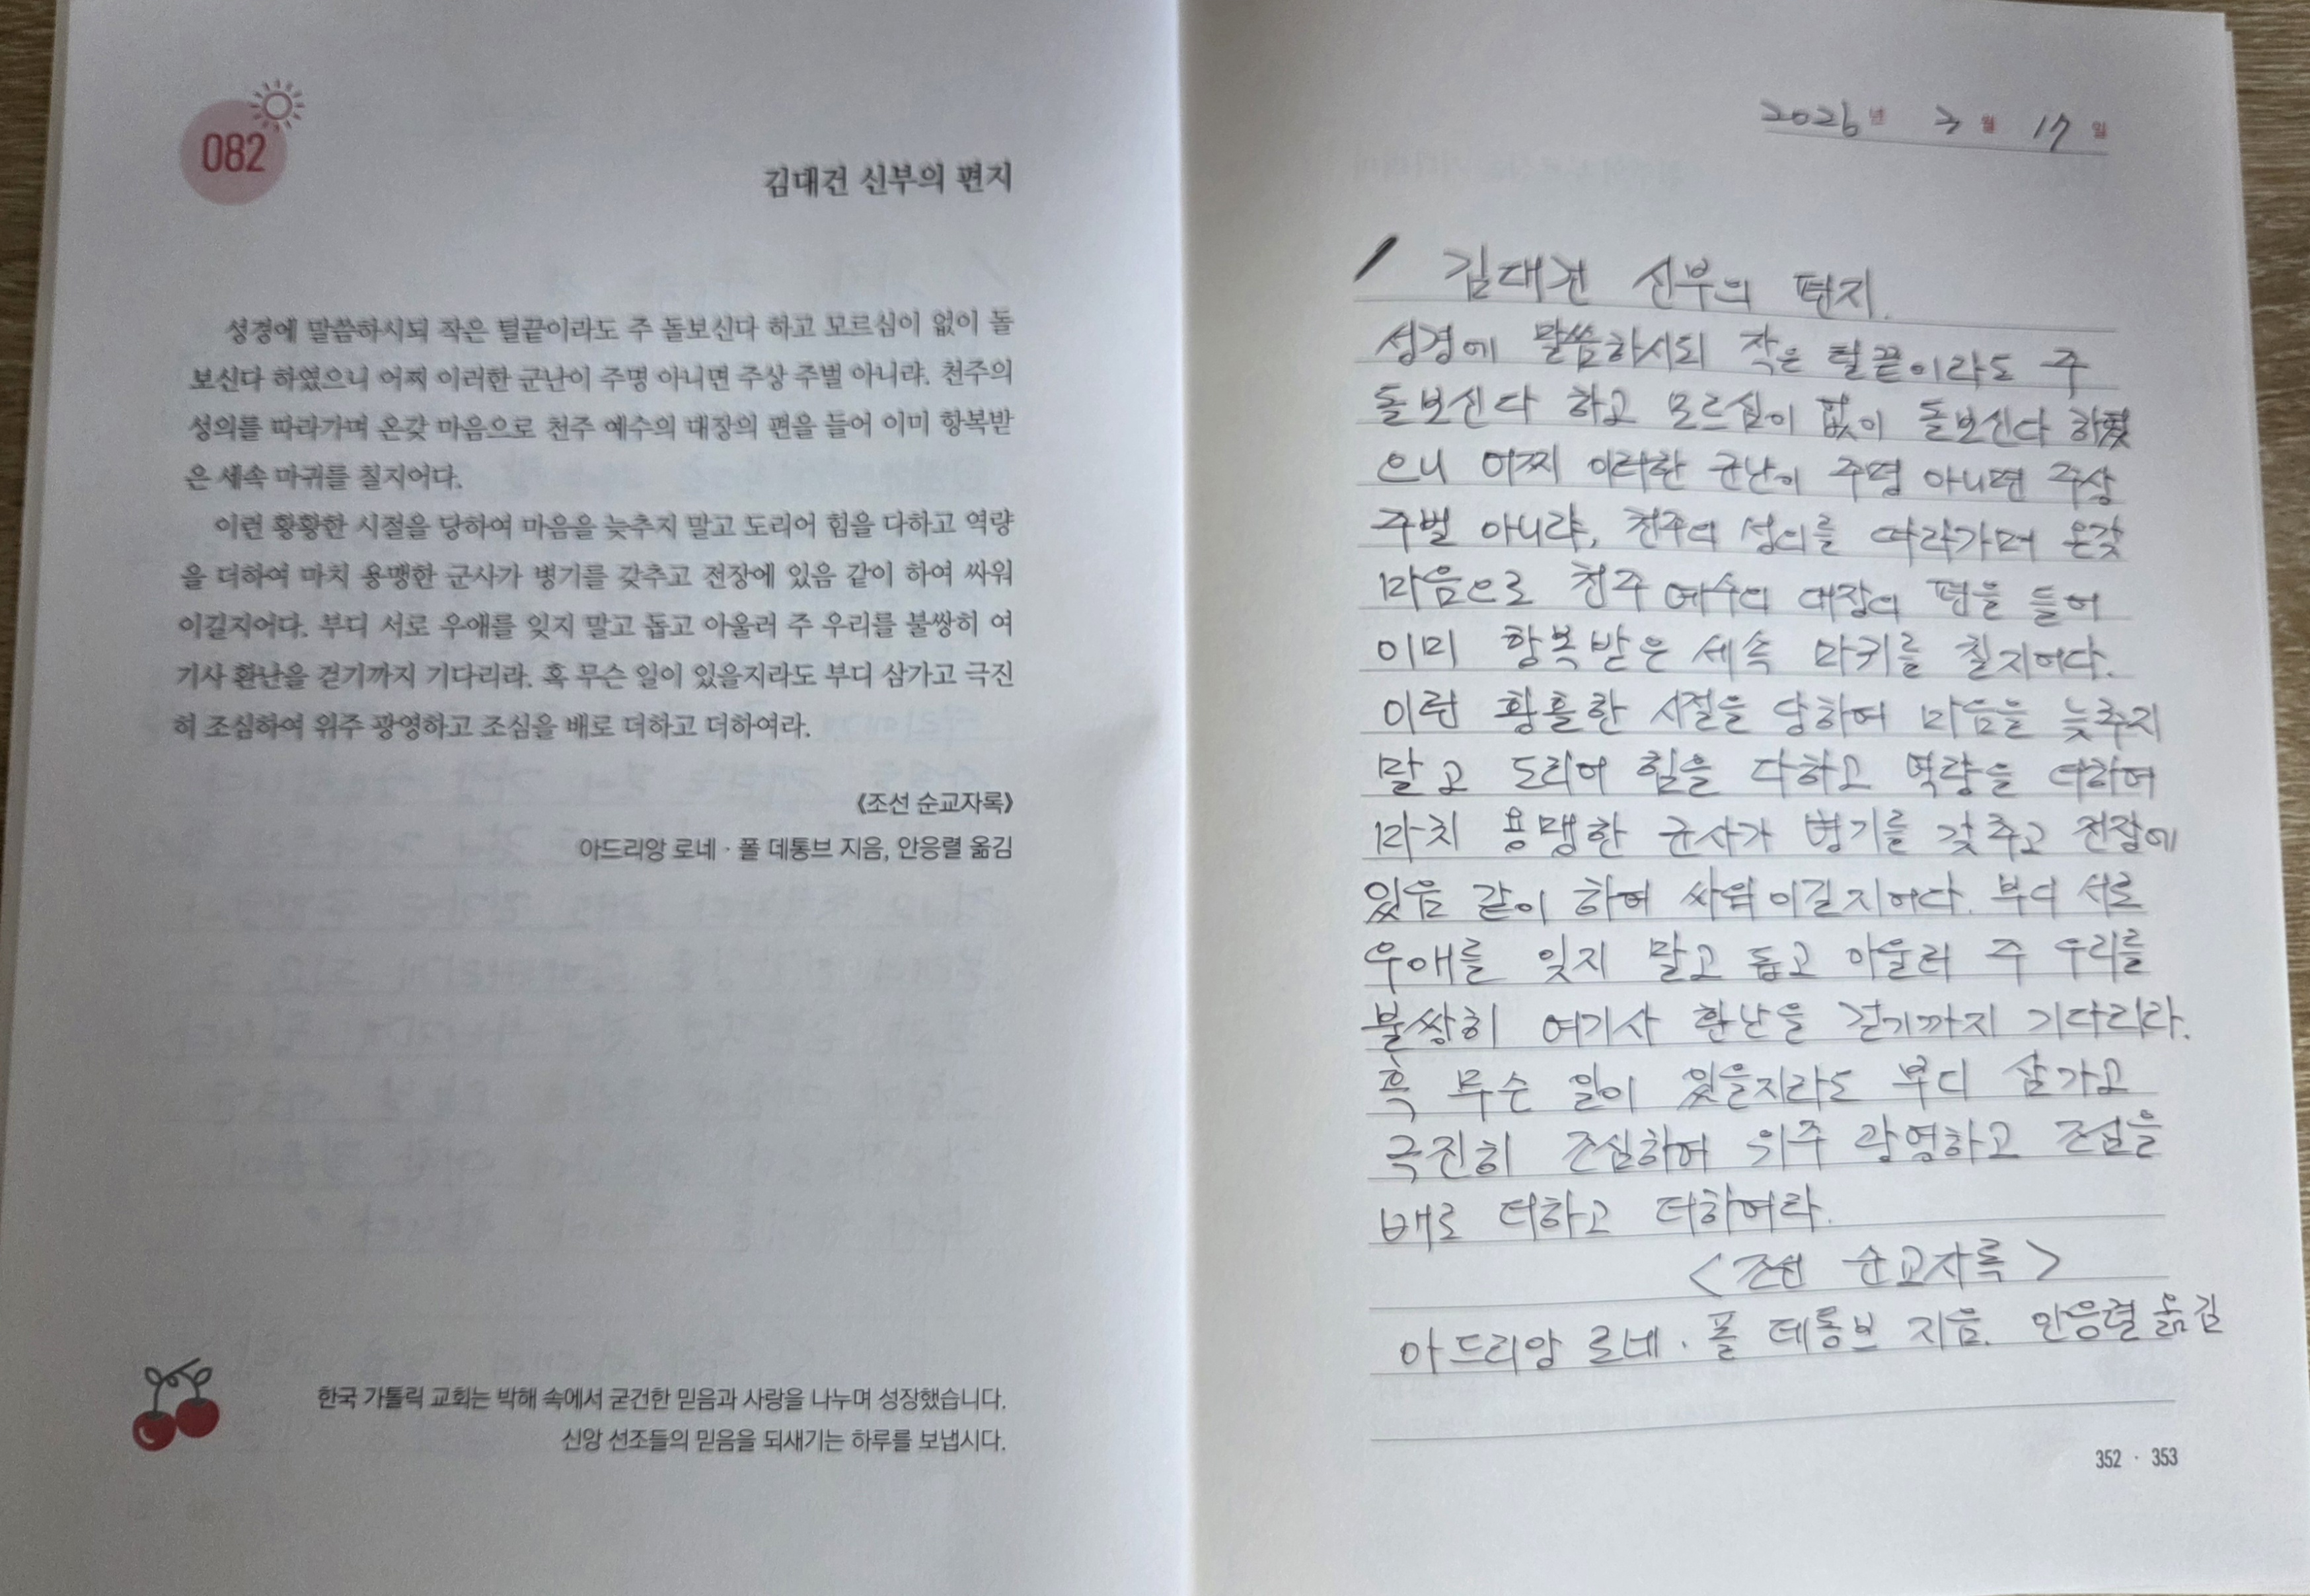 082
김대건 신부의 편지
성경에 말씀하시되 작은 털끝이라도 주 돌보신다 하고 모르심이 없이 돌
보신다 하였으니 어찌 이러한 군난이 주명 아니면 주상 주벌 아니랴. 천주의
성의를 따라가며 온갖 마음으로 천주 예수의 대장의 편을 들어 이미 항복받
은 세속 마귀를 칠지어다.
이런 황황한 시절을 당하여 마음을 늦추지 말고 도리어 힘을 다하고 역량
을 더하여 마치 용맹한 군사가 병기를 갖추고 전장에 있음 같이 하여 싸워
이길지어다. 부디 서로 우애를 잊지 말고 돕고 아울러 주 우리를 불쌍히 여
기사 환난을 걷기까지 기다리라. 혹 무슨 일이 있을지라도 부디 삼가고 극진
히 조심하여 위주 광영하고 조심을 배로 더하고 더하여라.
《조선 순교자록》
아드리앙 로네 · 폴 데통브 지음, 안응렬 옮김
한국 가톨릭 교회는 박해 속에서 굳건한 믿음과 사랑을 나누며 성장했습니다.
신앙 선조들의 믿음을 되새기는 하루를 보냅시다.
2026년 월 17일
김대건 신부의 편지.
성경에 말씀하시되 작은 털끝이라도 주
돌보신다 하고 모르심이 없이 돌보신다 하였
으니 어찌 이러한 군난이 주명 아니면 주상
주벌 아니랴, 천주의 성의를 따라가며 온갖
마음으로 천주 예수의 대장의 편을 들어
이미 항복받은 세속 마귀를 칠지어다.
이런 황홀한 시절을 당하여 마음을 늦추지
말고 도리어 힘을 다하고 역량을 더하여
마치 용맹한 군사가 병기를 갖추고 전장에
있음 같이 하여 싸워 이길지어다. 부디 서로
우애를 잊지 말고 돕고 아울러 주 우리를
불쌍히 여기사 환난을 걷기까지 기다리라.
혹 무슨 일이 있을지라도 부디 삼가고
극진히 조심하여 위주 광영하고 조심을
배로 더하고 더하여라.
<조선 순교자록>
아드리앙 로네 · 폴 데통브 지음. 안응렬 옮김
352 · 353